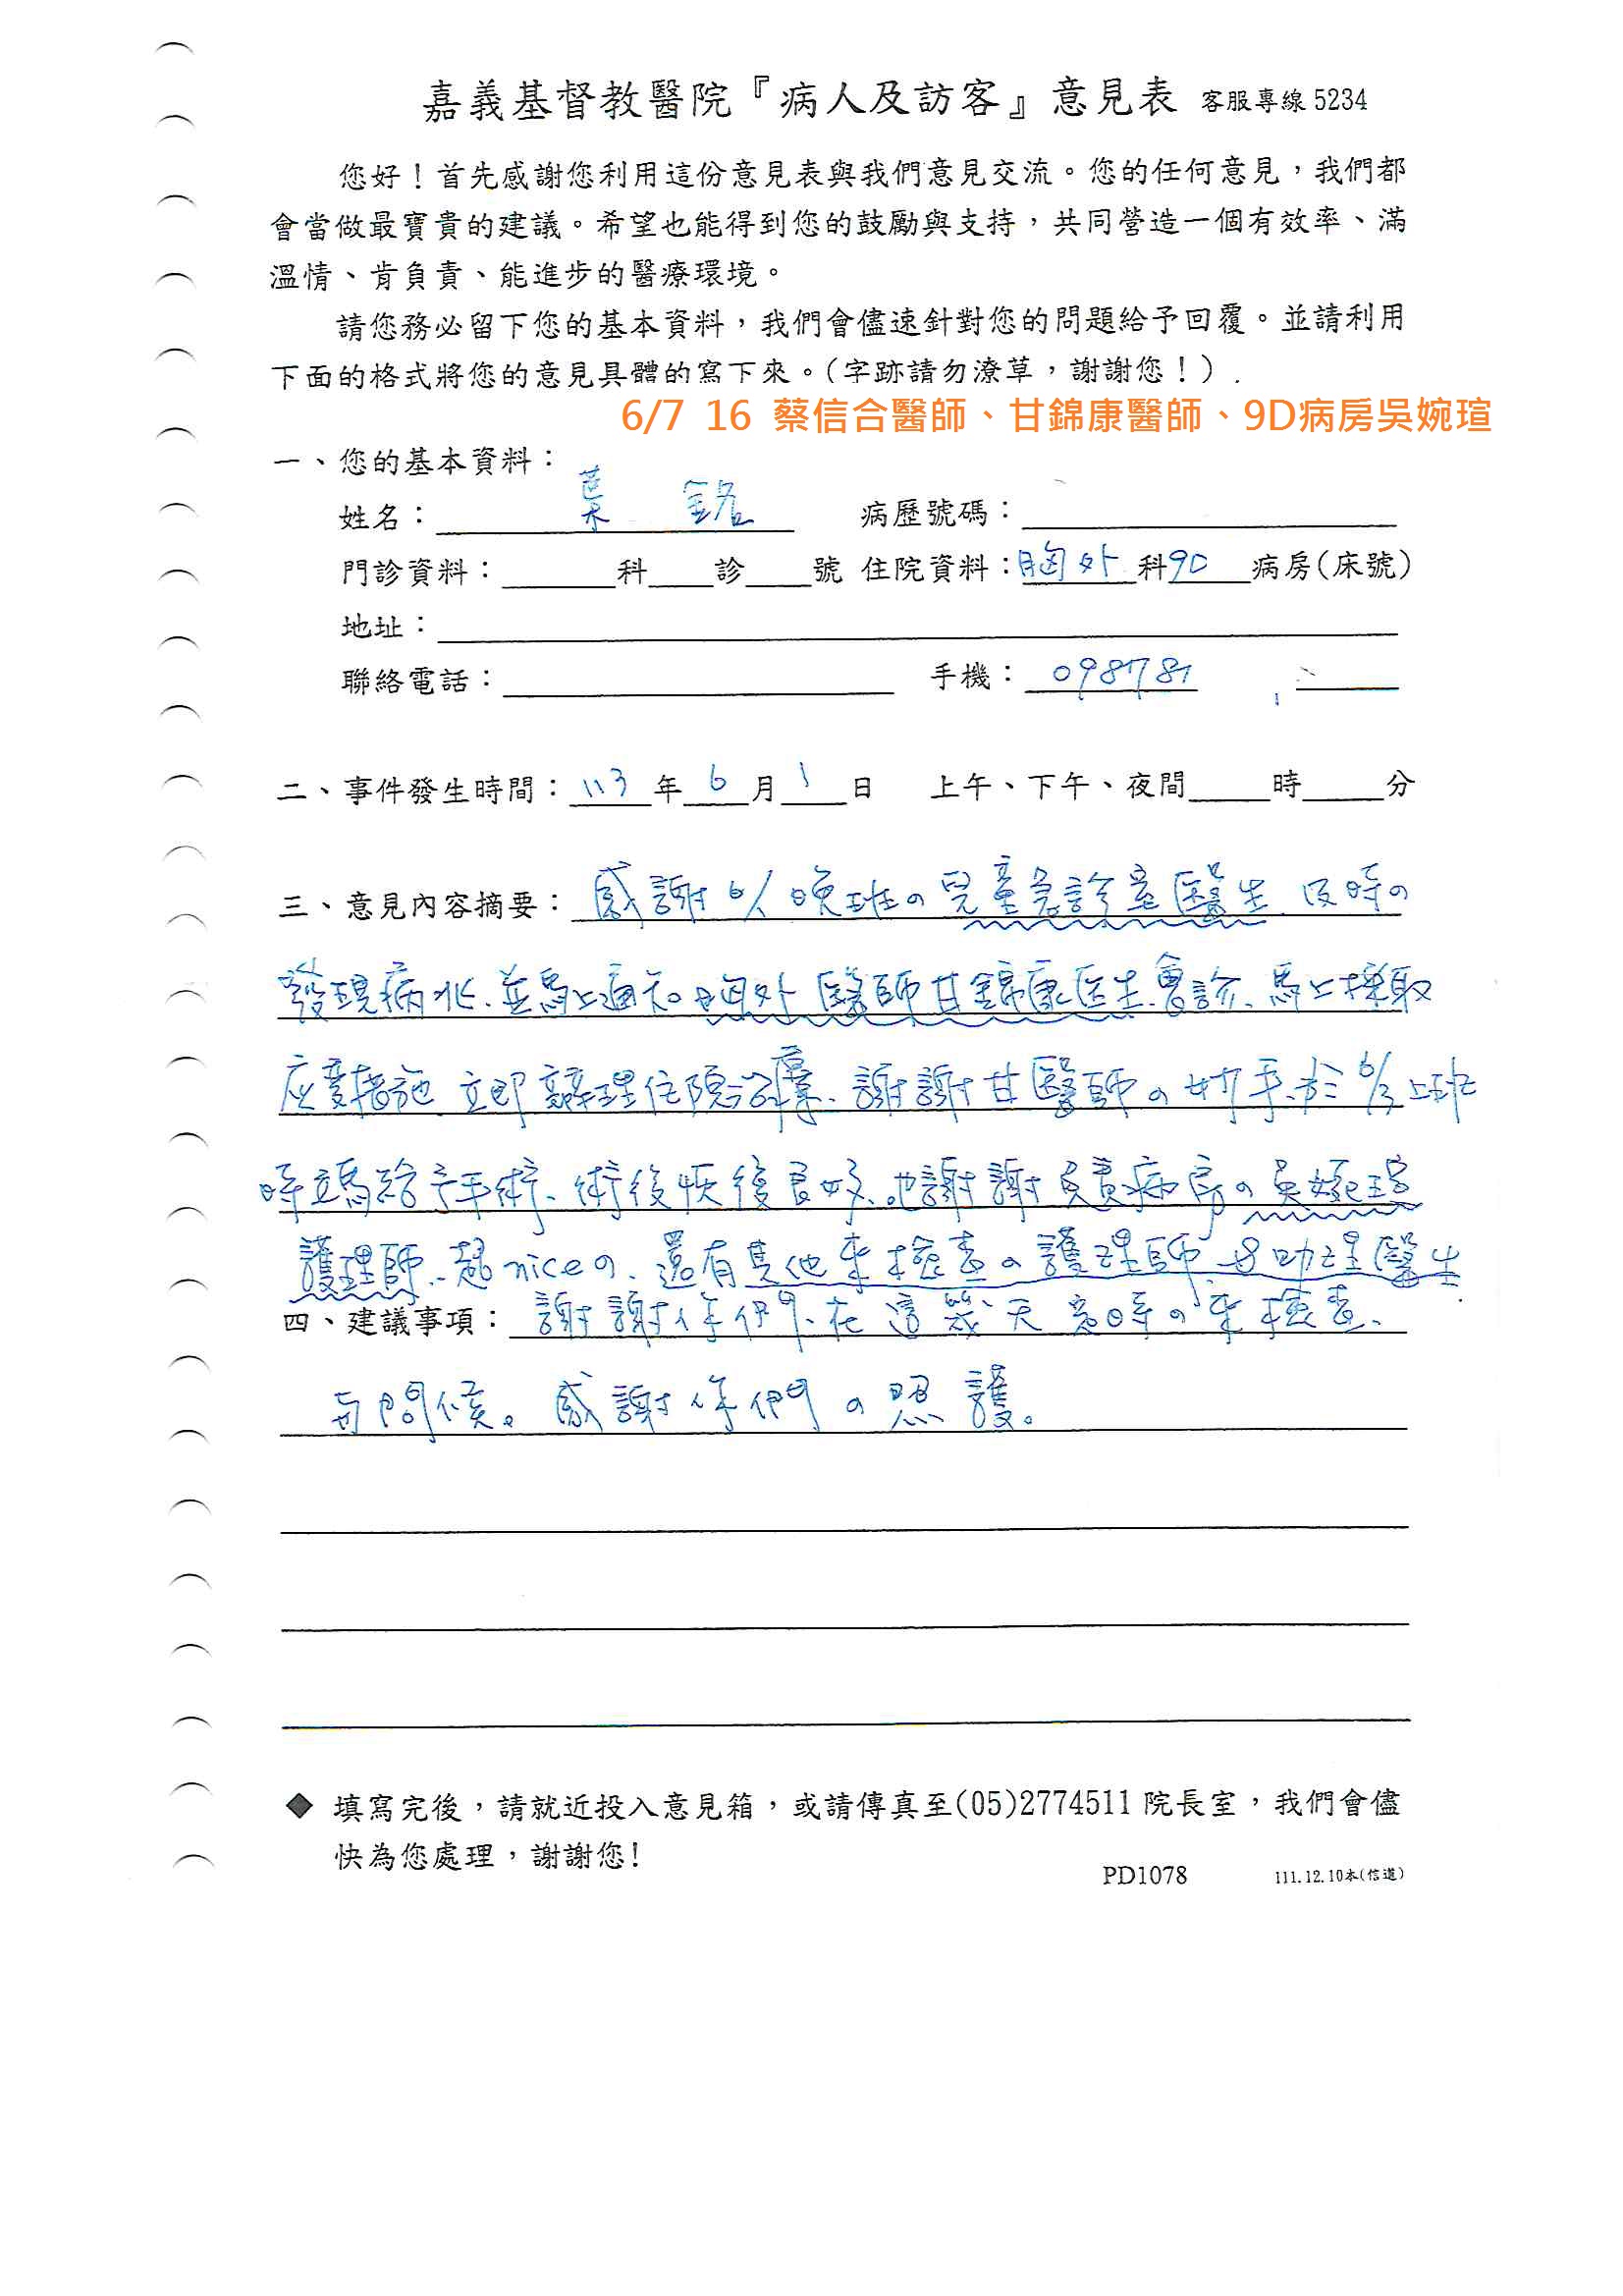 嘉義基督教醫院『病人及訪客』意見表 客服專線 5234
您好！首先感謝您利用這份意見表與我們意見交流。您的任何意見，我們都
會當做最寶貴的建議。希望也能得到您的鼓勵與支持，共同營造一個有效率、滿
溫情、肯負責、能進步的醫療環境。
請您務必留下您的基本資料，我們會儘速針對您的問題給予回覆。並請利用
下面的格式將您的意見具體的寫下來。（字跡請勿潦草，謝謝您！）
6/7 16 蔡信合醫師、甘錦康醫師、9D病房吳婉瑄
一、您的基本資料：
姓名：葉 銘 病歷號碼：
門診資料： 科 診 號 住院資料：胸外 科 9D 病房(床號)
地址：
聯絡電話： 手機：098781
二、事件發生時間：113 年 6 月 1 日 上午、下午、夜間 時 分
三、意見內容摘要：感謝 6/1 晚班の兒童急診室醫生、及時の
發現病兆、並馬上通知胸外醫師甘錦康医生會診、馬上採取
應變措施 立即辦理住院治療、謝謝甘醫師の妙手、於 6/3 上班
時立馬給予手術、術後恢復良好、也謝謝負責病房の吳婉瑄
護理師、超niceの、還有其他來檢查の護理師、與助理醫生
四、建議事項：謝謝你們、在這幾天 時の來檢查、
與問候。感謝你們の照護。
◆ 填寫完後，請就近投入意見箱，或請傳真至(05)2774511 院長室，我們會儘
快為您處理，謝謝您！
PD1078 111.12.10本(信道)